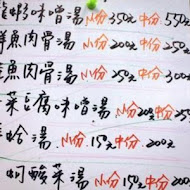 龍蝦味噌湯 小份350元 中份550元
鮮魚肉骨湯 小份200元 中份250元
魚肉骨湯 小份250元 中份300元
菜豆腐味噌湯 小份200 中份25
蛤湯 小份150元 中份200元
蚵酸菜湯 小份150元 中份200